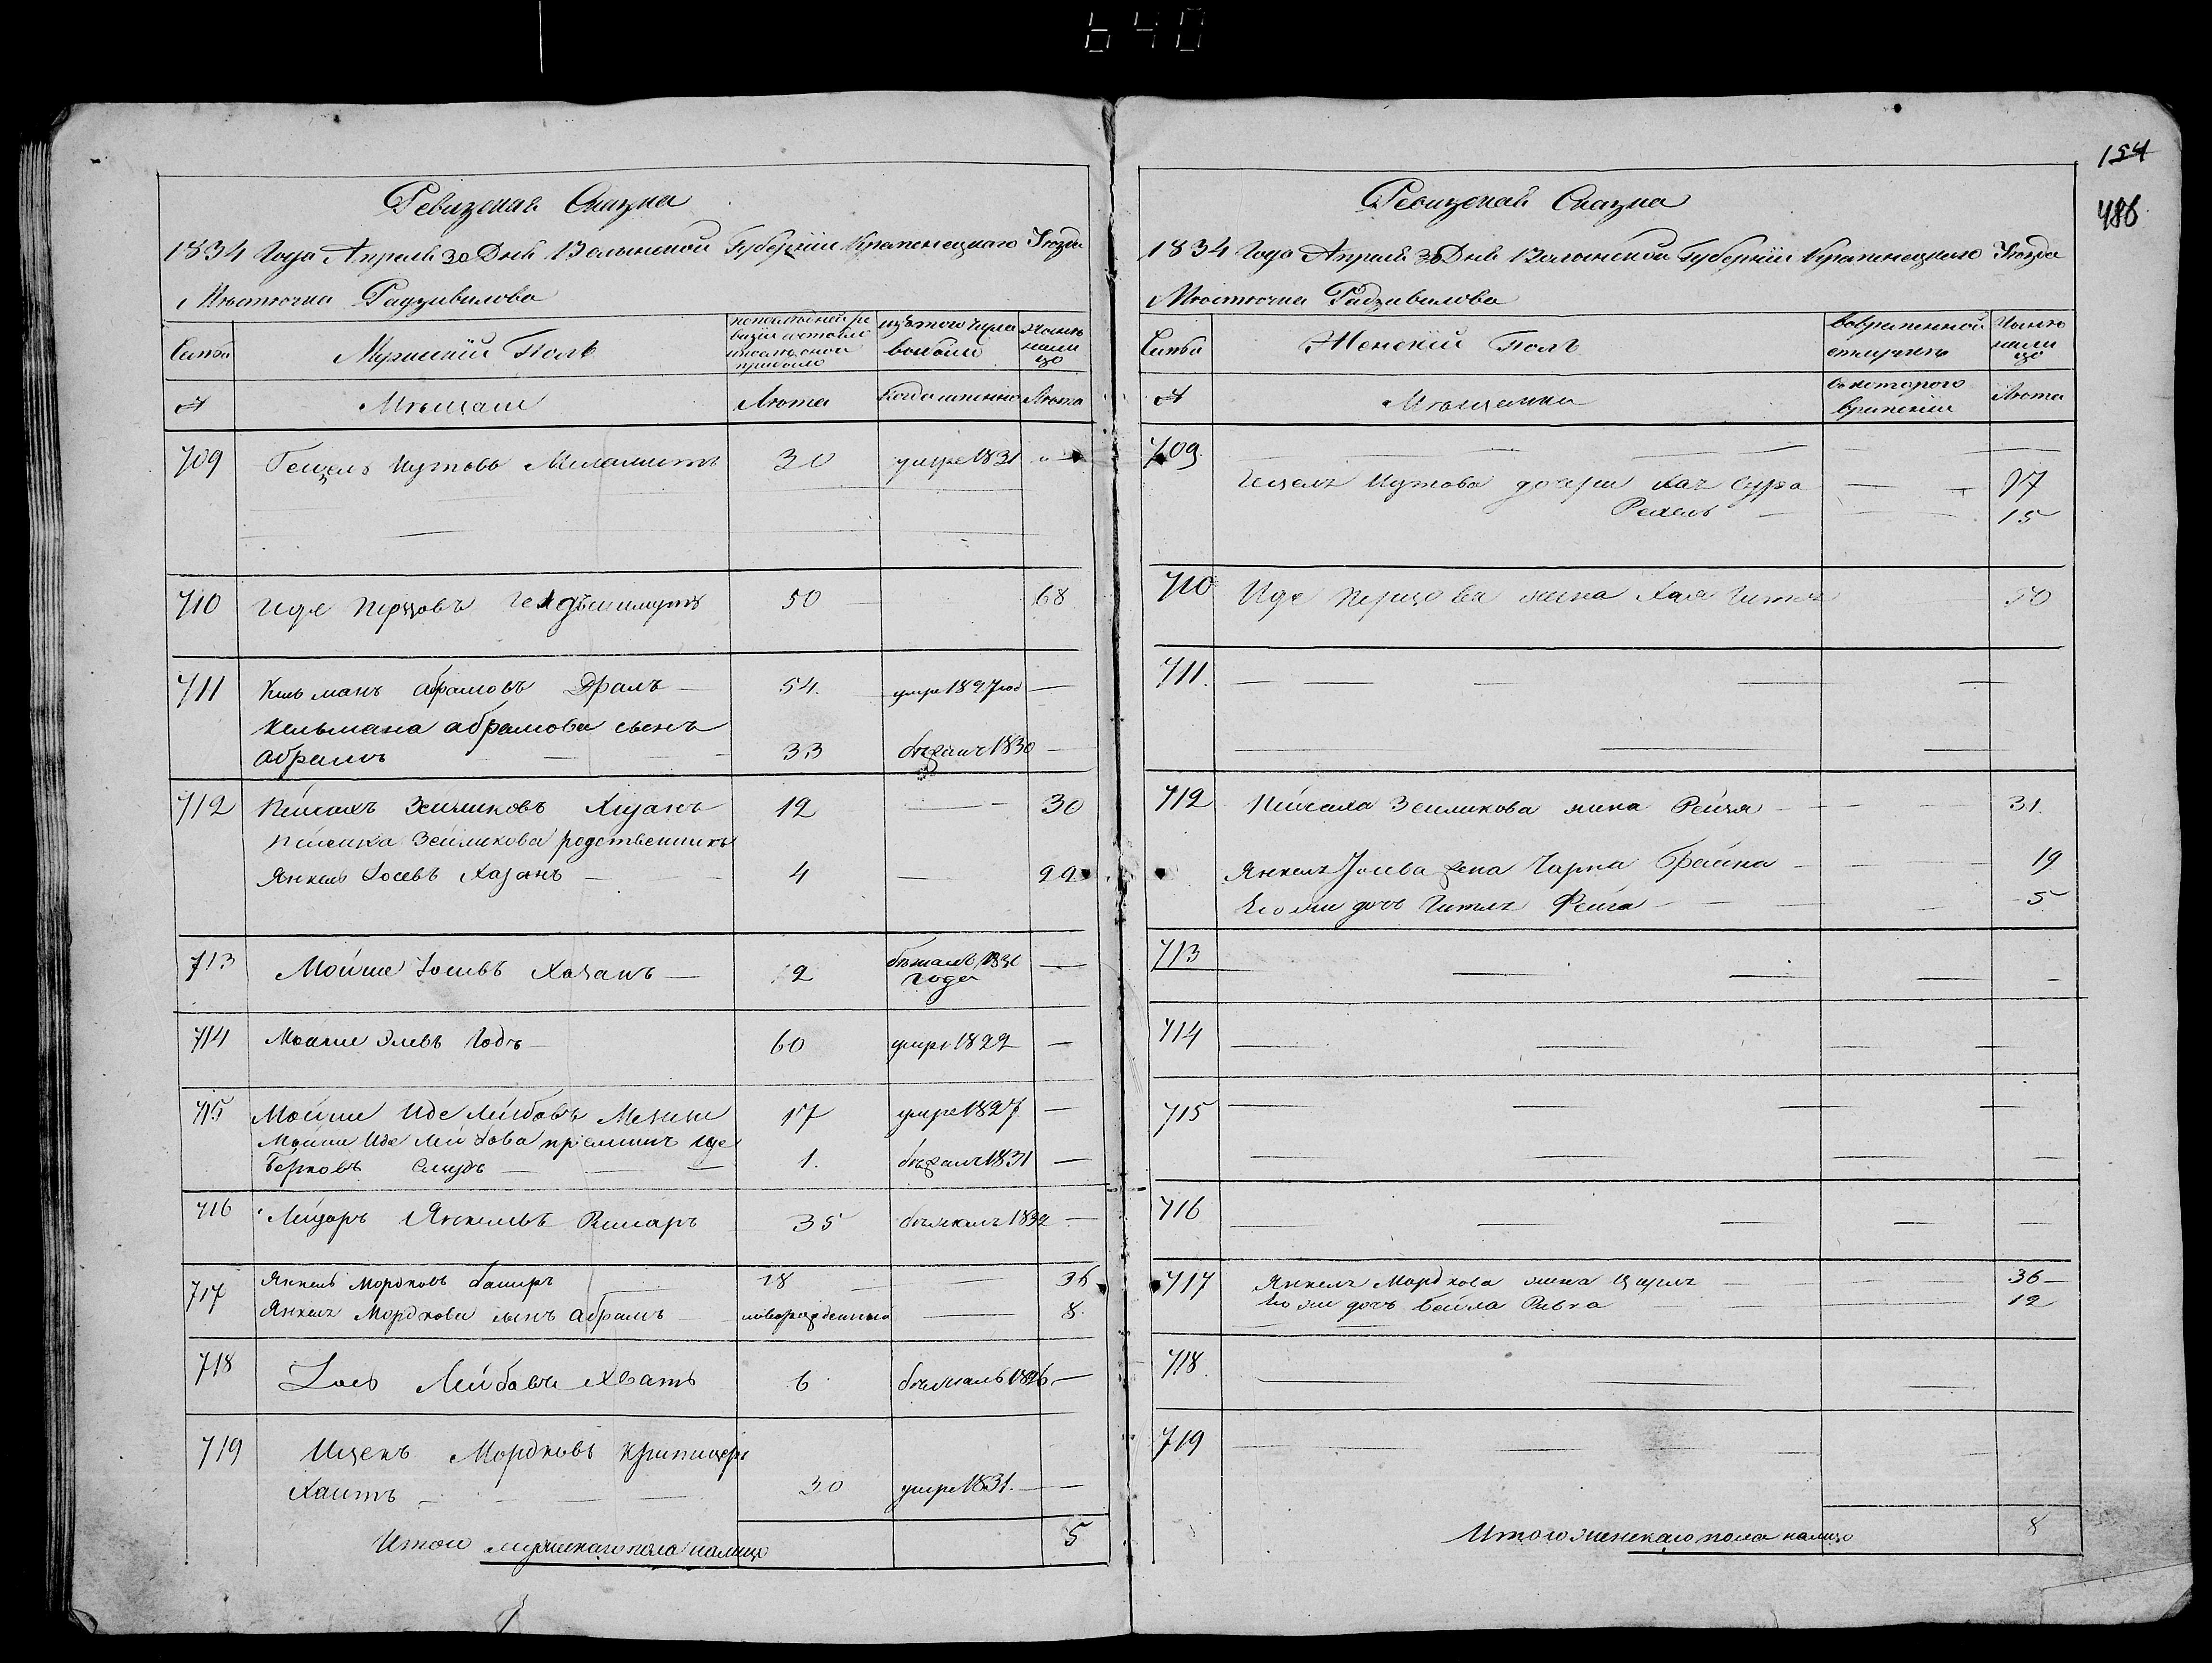 640
154
486
Ревизская Сказка
1834 Года Апреля 30 Дня Волынской Губернiи Кременецкаго Уезда
Мѣстечка Радзивилова
Семьи
Мужескiй Полъ
по последней ревизiи состояло и после оной прибыло
изъ того числа выбыло
Нынѣ на лицо
№
Мѣщане
Лѣта
Когда именно
Лѣта
709 Гецель Ицковъ 30 умре 1831
710 Иде Перцовъ 50 68
711 Кельманъ Абрамовъ Дралъ 54. умре 1827 год
Кельмана Абрамова сынъ
Абрамъ 33 бѣжалъ 1830
712 Пейсахъ Зейликовъ Хазанъ 12 30
Пейсаха Зейликова родственникъ
Янкель Iосевъ Хазанъ 4 22
713 Мойше Iосевъ Хазанъ 12 бѣжалъ 1831
года
714 60 умре 1822
715 Мойше Иде Лейбовъ 17 умре 1827
Мойше Иде Лейбова прiемишъ Иде
Берковъ 1. бѣжалъ 1831
716 Лейзоръ Янкелевъ Римаръ 35 бѣжалъ 1832
717 Янкель Мордковъ 18 36
Янкеля Мордкова сынъ Абрамъ новорожденный 8
718 Iось Лейбовъ Хватъ 6 бѣжалъ 1826
719 Ицекъ Мордковъ
30 умре 1831.
Итого мужескаго пола налицо 5
Ревизская Сказка
1834 Года Апреля 30 Дня Волынской Губернiи Кременецкаго Уезда
Мѣстечка Радзивилова
Семьи
Женскiй Полъ
во временной отлучке
Нынѣ на лицо
№
Мѣщанки
съ котораго времени
Лѣта
709
Гецеля Ицкова дочери Хая Сура 17
Рехель 15
710 Иде Перцова жена Хая Гитля 50
711.
712 Пейсаха Зейликова жена Рейзя 31.
Янкеля Iосева жена Чарна Брайна 19
Его же дочь Гитля Фейга 5
713
714
715
716
717 Янкеля Мордкова жена 36
Его же дочь Бейла Ривка 12
718.
719
Итого женскаго пола налицо 8